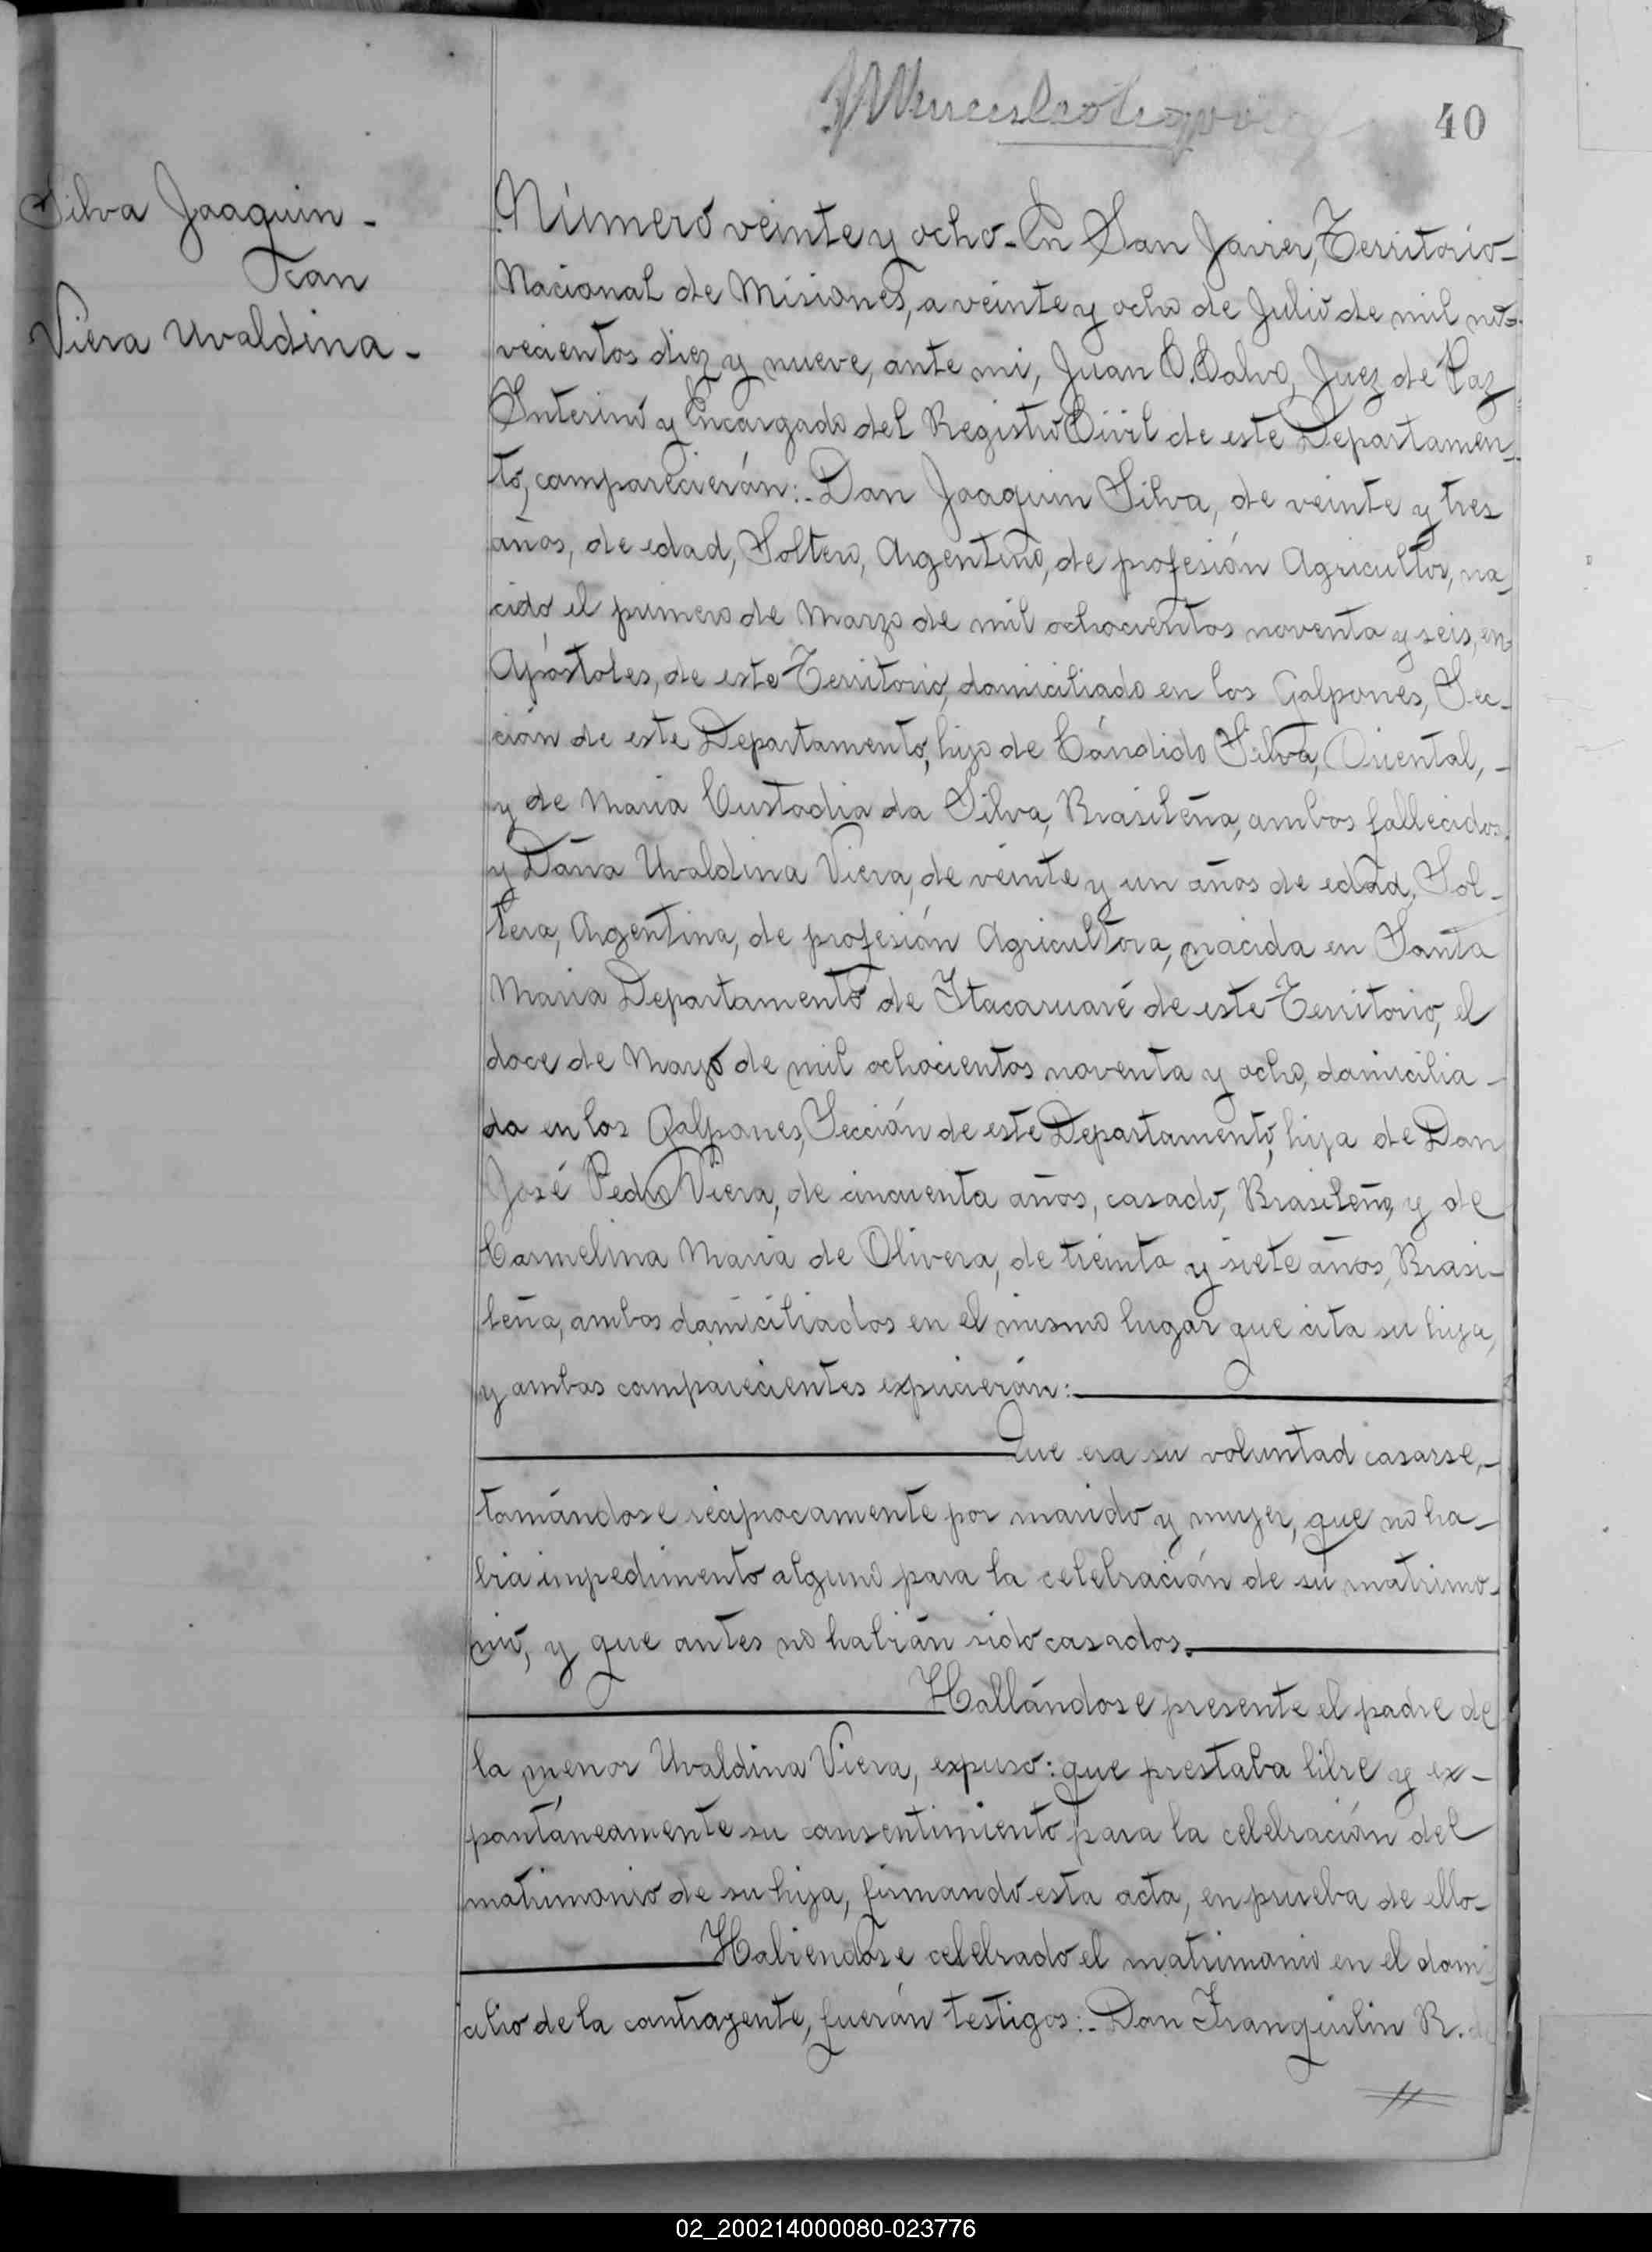 40
Silva Joaquin -
Con
Viera Uvaldina -
Número veinte y ocho - En San Javier, Territorio -
Nacional de Misiones, a veinte y ocho de Julio de mil no-
vecientos diez y nueve, ante mi, Juan C. Calvo, Juez de Paz
Interino y Encargado del Registro Civil de este Departamen-
to, comparecierón:- Don Joaquin Silva, de veinte y tres
años, de edad, Soltero, Argentino, de profesión Agricultor, na-
cido el primero de Marzo de mil ochocientos noventa y seis, en
Apóstoles, de este Territorio, domiciliado en los Galpones, Sec-
ción de este Departamento, hijo de Cándido Silva, Oriental, -
y de Maria Custodia da Silva, Brasileña, ambos fallecidos,
y Doña Uvaldina Viera, de veinte y un años de edad, Sol-
tera, Argentina, de profesión Agricultora, nacida en Santa
Maria Departamento de Itacaruaré de este Territorio, el
doce de Mayo de mil ochocientos noventa y ocho, domicilia-
da en los Galpones, Sección de este Departamento, hija de Don
José Pedro Viera, de cincuenta años, casado, Brasileño, y de
Carmelina Maria de Olivera, de treinta y siete años, Brasi-
leña, ambos domiciliados en el mismo lugar que cita su hija,
y ambos comparecientes expucierón:
Que era su voluntad casarse, -
tomándose reciprocamente por marido y mujer, que no ha-
bia impedimento alguno para la celebración de su matrimo-
nio, y que antes no habián sido casados.
Hallándose presente el padre de
la menor Uvaldina Viera, expuso: que prestaba libre y ex-
pontáneamente su consentimiento para la celebración del
matrimonio de su hija, firmando esta acta, en prueba de ello -
Habiendose celebrado el matrimonio en el domi-
cilio de la contrayente, fuerón testigos:- Don Franquilin R. de
02_200214000080-023776